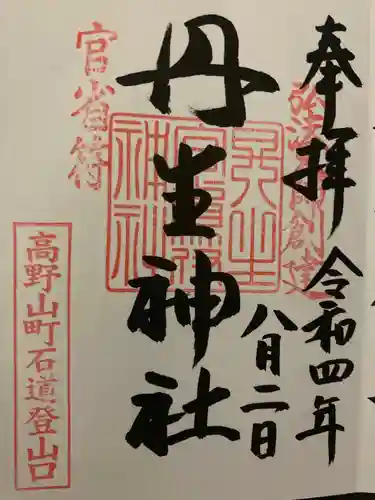 奉拝
令和四年
八月二日
弘法大師創建
丹生神社
丹生官省符神社
官省符
高野山町石道登山口